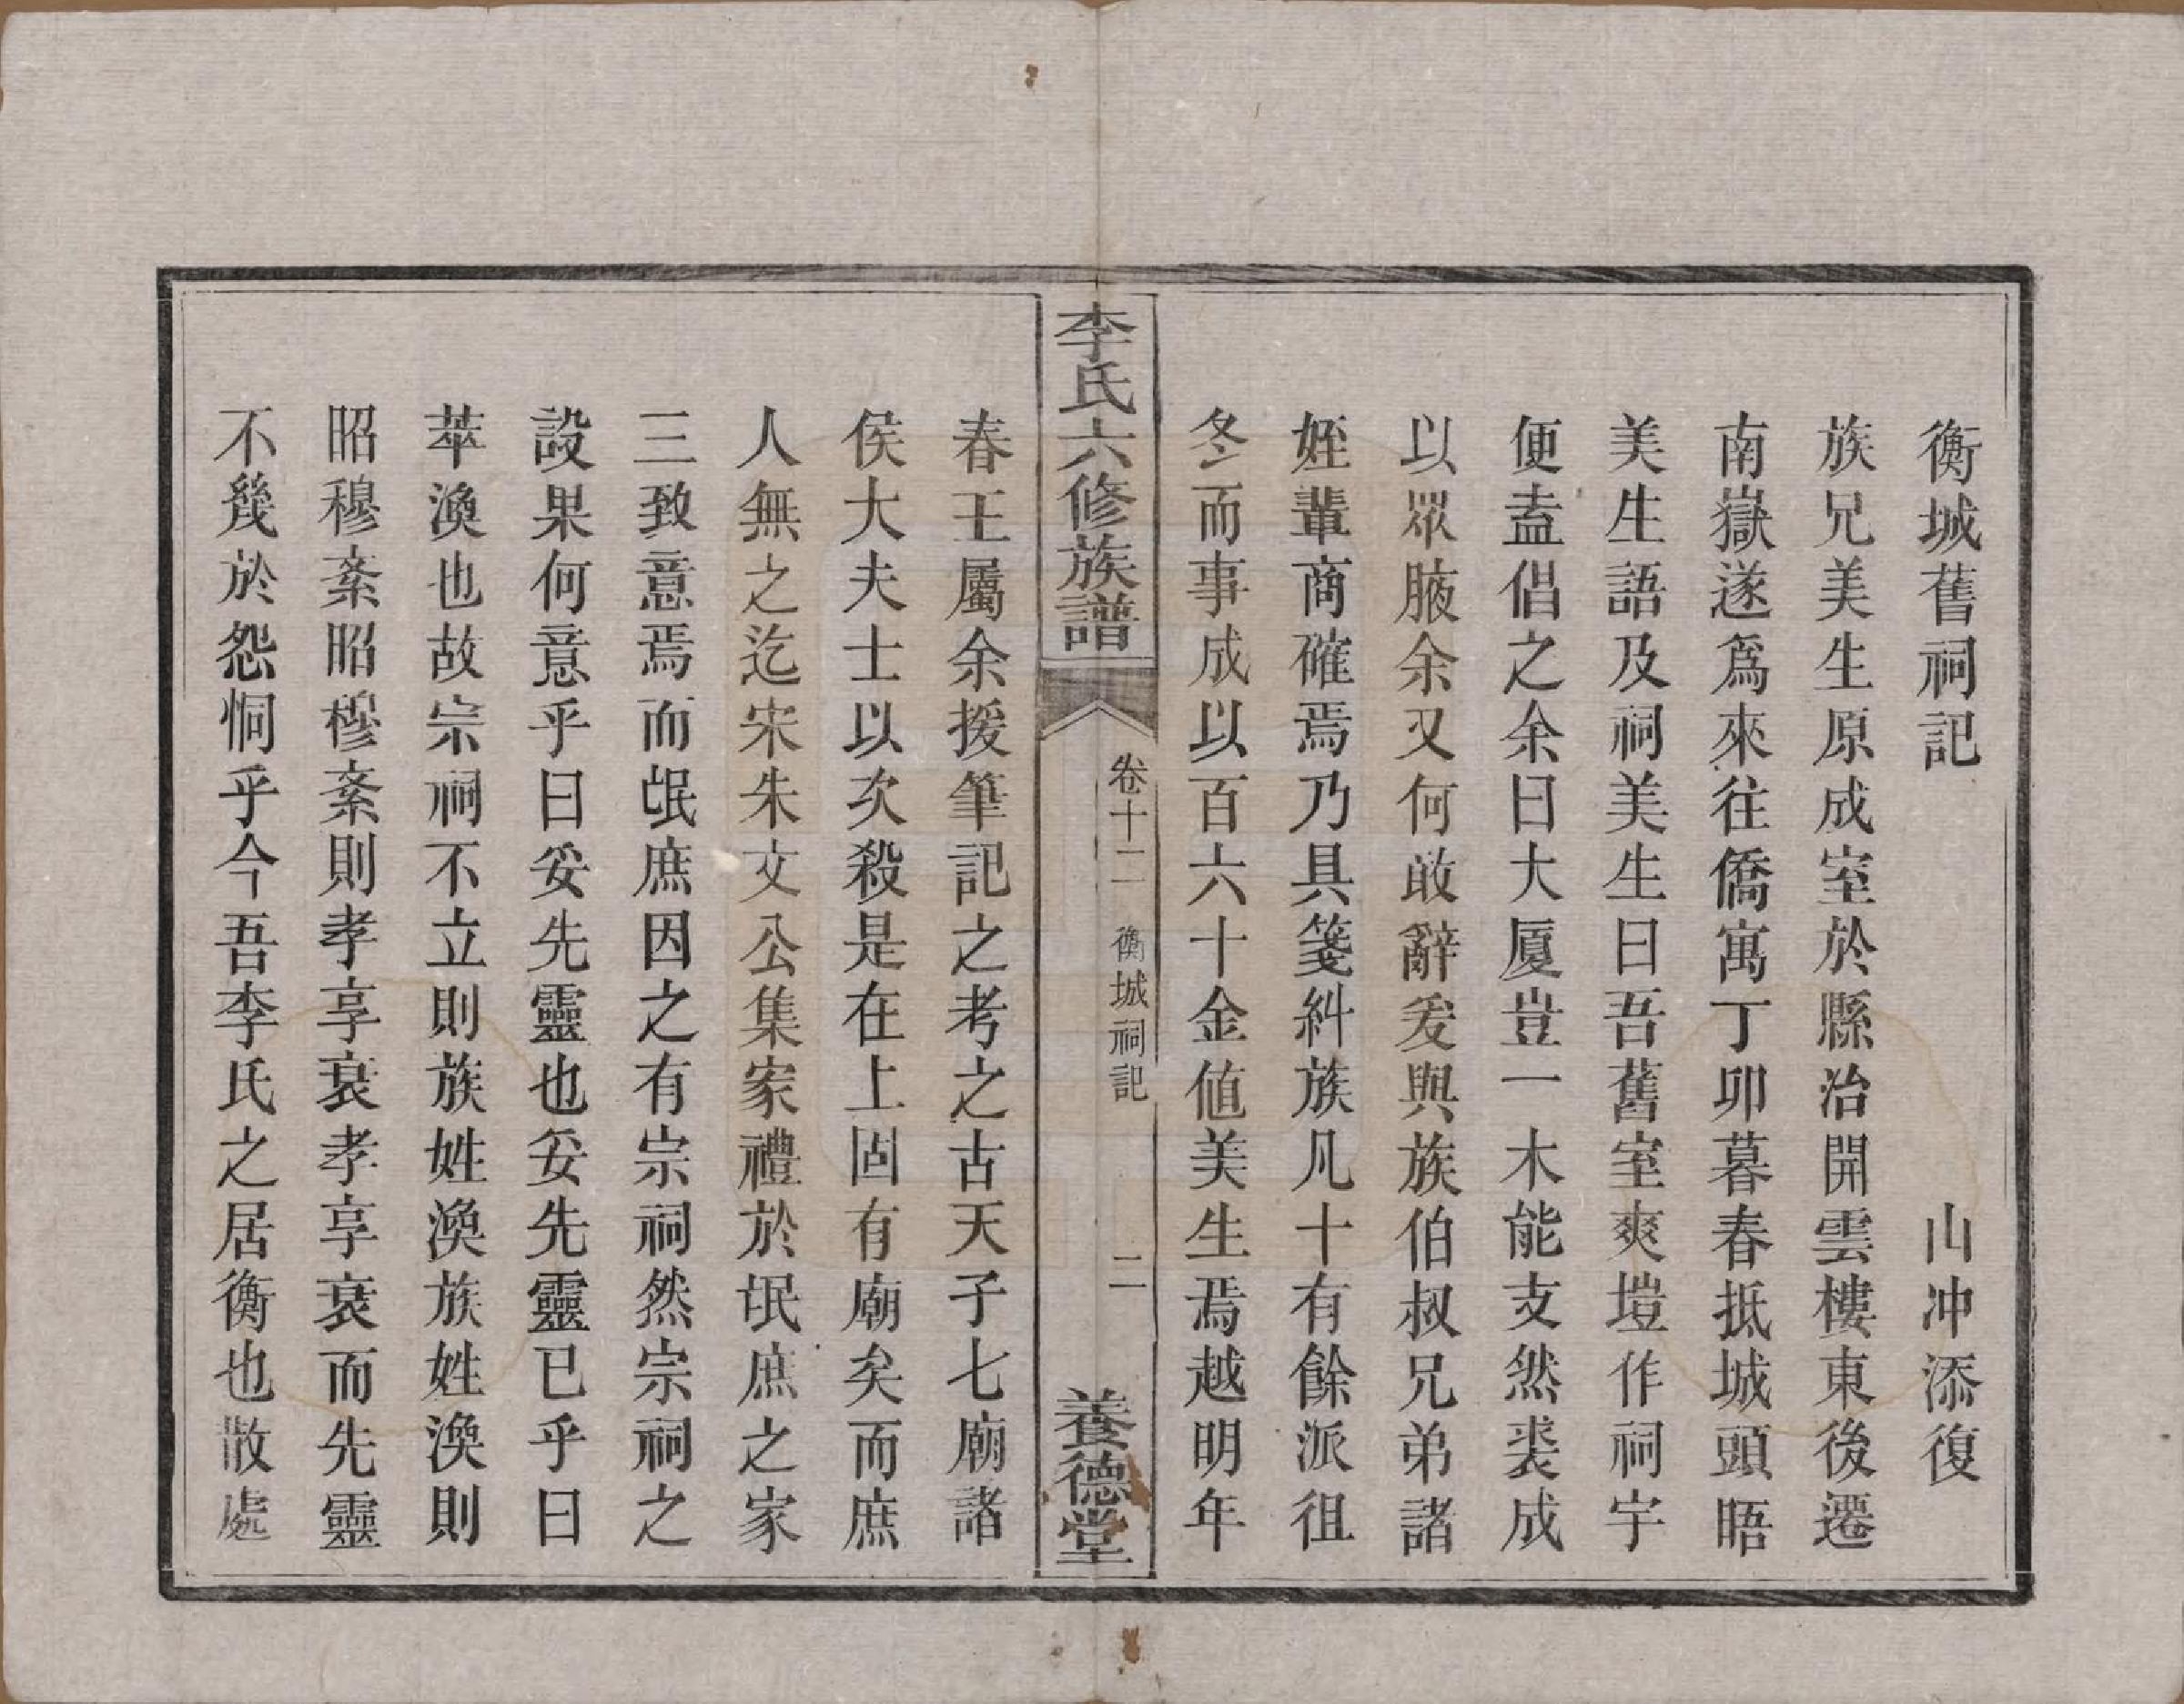 衡城舊祠記　　　　　山冲添復
族兄美生原成室於縣治開雲樓東後遷
南嶽遂爲來往僑寓丁卯暮春抵城頭晤
美生語及祠美生曰吾舊室爽塏作祠宇
便盍倡之余曰大厦豈一木能支然裘成
以眾腋余又何敢辭爰與族伯叔兄弟諸
姪輩商確焉乃具箋糾族凡十有餘派徂
冬而事成以百六十金値美生焉越明年
李氏六修族譜
卷十二　衡城祠記
二
養德堂
春王屬余援筆記之考之古天子七廟諸
侯大夫士以次殺是在上固有廟矣而庶
人無之迄宋朱文公集家禮於氓庶之家
三致意焉而氓庶因之有宗祠然宗祠之
設果何意乎曰妥先靈也妥先靈已乎曰
萃渙也故宗祠不立則族姓渙族姓渙則
昭穆紊昭穆紊則孝享衰孝享衰而先靈
不幾於怨恫乎今吾李氏之居衡也散處